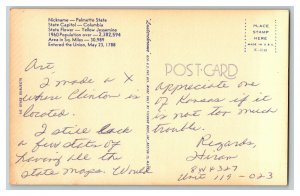 Nickname — Palmetto State
State Capitol — Columbia
State Flower — Yellow Jessamine
1960 Population over — 2,382,594
Area in Sq. Miles — 30,989
Entered the Union, May 23, 1788
PLACE
STAMP
HERE
POST-CARD
Art,
I made a X
where Clinton is
located.
I still lack
a few states of
having all the
state maps. Would
Appreciate one
of Kansas if it
is not too much
trouble.
Regards,
Hiram
8W4327
Unit 119-023